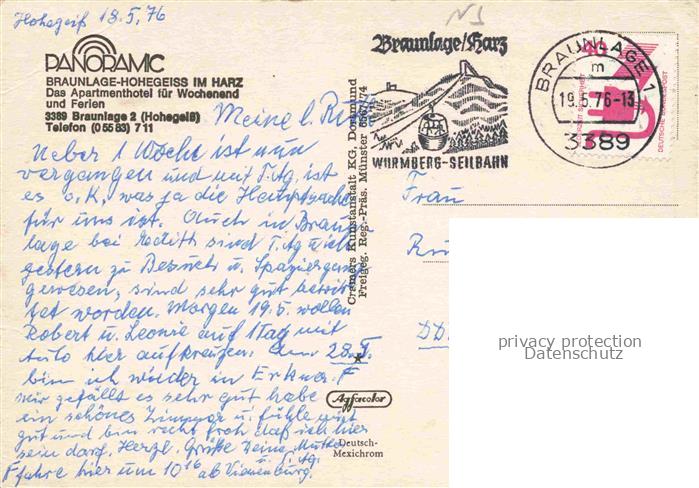 Hohegeiß 18.5.76
PANORAMIC
BRAUNLAGE-HOHEGEISS IM HARZ
Das Apartmenthotel für Wochenend
und Ferien
3389 Braunlage 2 (Hohegeiß)
Telefon (05583) 711
Meine l. Ru
Ueber 1 Woche ist nun
vergangen und mit T. Ag. ist
es o.K, was ja die Hauptsache
für uns ist. Auch in Braun
lage bei sind T. Ag u. ich
gestern zu Besuch u. Spaziergang
gewesen, sind sehr gut bewir
tet worden. Morgen 19.5. wollen
Robert u. Leonie auf 1 Tag mit
Auto hier aufkreuzen. Am 28.5.
bin ich wieder in Erkner.
Mir gefällt es sehr gut habe
ein schönes Zimmer u. fühle mich
gut und bin recht froh daß ich hier
sein darf. Herzl. Grüße Deine Mutter
u. T. Ag.
Fahre hier um 10 16 ab Vienenburg.
Cramers Kunstanstalt KG, Dortmund
Freigeg. Reg.-Präs. Münster 74
Agfacolor
Deutsch-
Mexichrom
Braunlage/Harz
WURMBERG-SEILBAHN
BRAUNLAGE 1
m
19.5.76-13
3389
40
DEUTSCHE BUNDESPOST
Frau
Ru
DD
privacy protection
Datenschutz